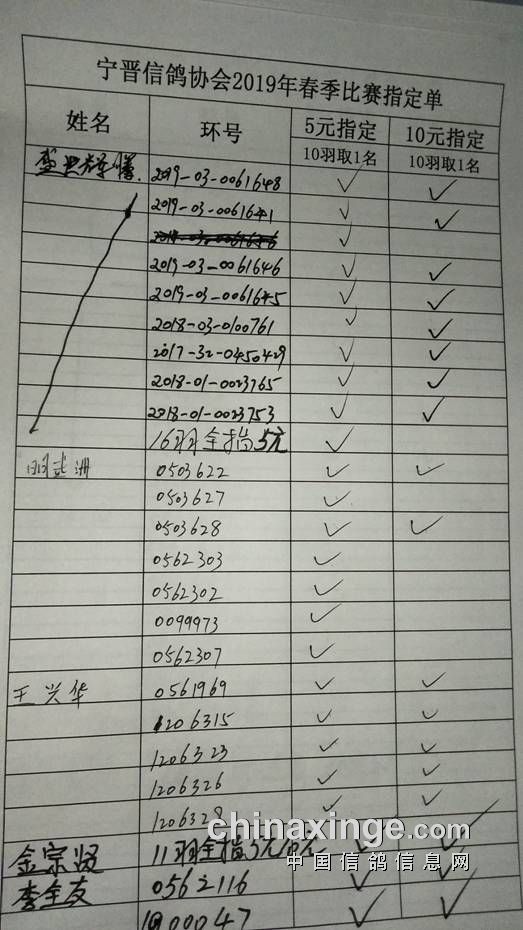 宁晋信鸽协会2019年春季比赛指定单
姓名 环号 5元指定 10元指定
10羽取1名 10羽取1名
2019-03-0061648 ✓ ✓
2019-03-0061641 ✓ ✓
✓
2019-03-0061646 ✓ ✓
2019-03-0061645 ✓ ✓
2018-03-0100761 ✓ ✓
2017-32-0450429 ✓ ✓
2018-01-0023765 ✓ ✓
2018-01-0023753 ✓ ✓
16羽全指5元 ✓
0503622 ✓ ✓
0503627 ✓
0503628 ✓ ✓
0562303 ✓
0562302 ✓
0099973 ✓
0562307 ✓
王兴华 0561969 ✓ ✓
1206315 ✓ ✓
1206323 ✓ ✓
1206326 ✓ ✓
1206328 ✓ ✓
金宗贤 11羽全指5元10元 ✓ ✓
李全友 0562116 ✓ ✓
1000047 ✓ ✓
chinaxinge.com
中国信鸽信息网